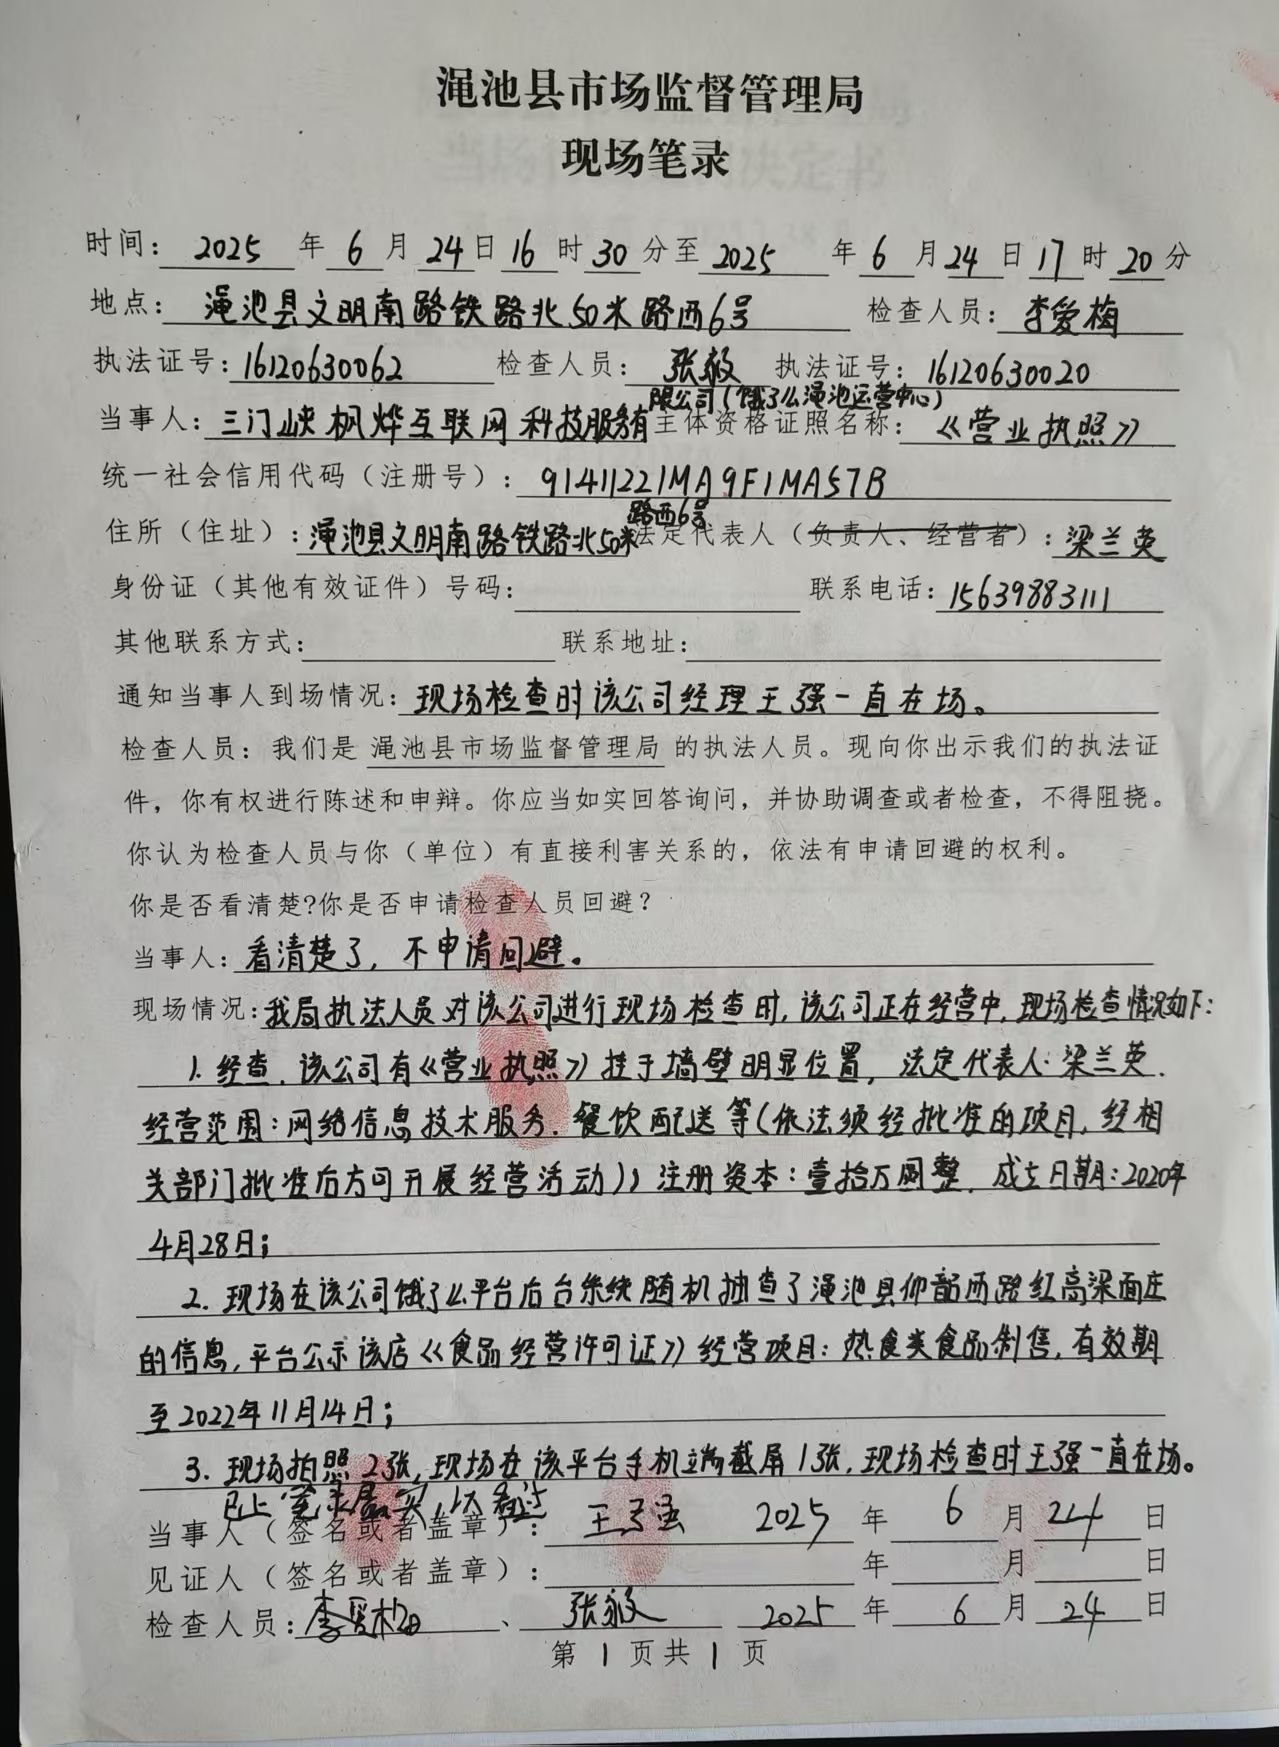 渑池县市场监督管理局
现场笔录
时间: 2025 年 6 月 24 日 16 时 30 分至 2025 年 6 月 24 日 17 时 20 分
地点: 渑池县文明南路铁路北50米路西6号 检查人员: 李爱梅
执法证号: 16120630062 检查人员: 张毅 执法证号: 16120630020
限公司(饿了么渑池运营中心)
当事人: 三门峡枫烨互联网科技服务有 主体资格证照名称: 《营业执照》
统一社会信用代码(注册号): 91411221MA9F1MA57B
路西6号
住所(住址): 渑池县文明南路铁路北50米 法定代表人(负责人、经营者): 梁兰英
身份证(其他有效证件)号码: 联系电话: 15639883111
其他联系方式: 联系地址:
通知当事人到场情况: 现场检查时该公司经理王强一直在场。
检查人员: 我们是 渑池县市场监督管理局 的执法人员。现向你出示我们的执法证
件,你有权进行陈述和申辩。你应当如实回答询问,并协助调查或者检查,不得阻挠。
你认为检查人员与你(单位)有直接利害关系的,依法有申请回避的权利。
你是否看清楚?你是否申请检查人员回避?
当事人: 看清楚了,不申请回避。
现场情况: 我局执法人员对该公司进行现场检查时,该公司正在经营中,现场检查情况如下:
1. 经查,该公司有《营业执照》挂于墙壁明显位置,法定代表人:梁兰英.
经营范围:网络信息技术服务.餐饮配送等(依法须经批准的项目,经相
关部门批准后方可开展经营活动)) 注册资本:壹拾万圆整,成立日期:2020年
4月28日;
2. 现场在该公司饿了么平台后台系统随机抽查了渑池县仰韶西路红高粱面庄
的信息,平台公示该店《食品经营许可证》经营项目:热食类食品制售,有效期
至2022年11月14日;
3. 现场拍照2张,现场在该平台手机端截屏1张,现场检查时王强一直在场。
已上笔录属实,以看过
当事人(签名或者盖章): 王强 2025 年 6 月 24 日
见证人(签名或者盖章): 年 月 日
检查人员: 李爱梅 、 张毅 2025 年 6 月 24 日
第 1 页共 1 页